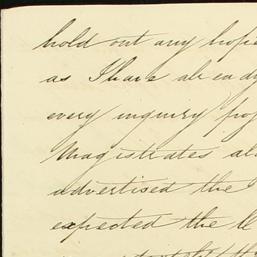 hold out any hopes
as I have already
every inquiry
Magistrates
advertised the
expected the